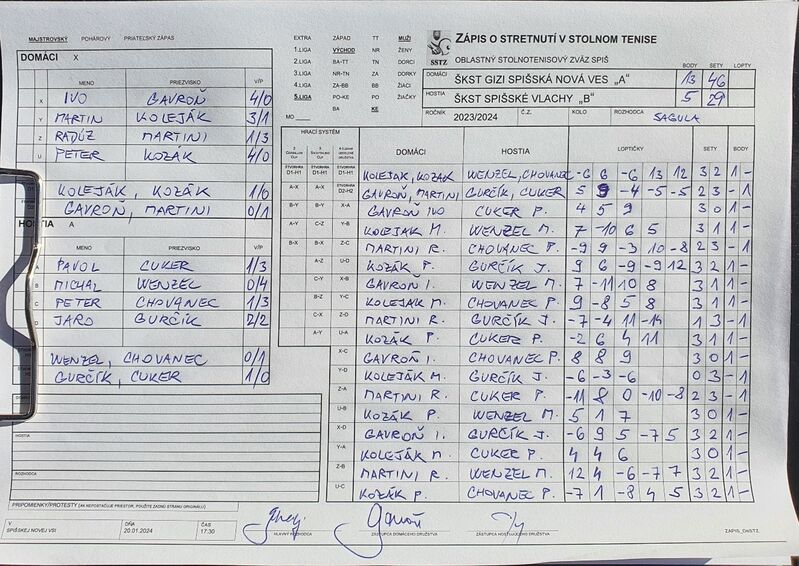 MAJSTROVSKÝ POHÁROVÝ PRIATEĽSKÝ ZÁPAS
DOMÁCI X
MENO PRIEZVISKO V/P
X IVO GAVROŇ 4/0
Y MARTIN KOLEJÁK 3/1
Z RADÚZ MARTINI 1/3
U PETER KOZÁK 4/0
KOLEJÁK, KOZÁK 1/0
GAVROŇ, MARTINI 0/1
HOSTIA A
MENO PRIEZVISKO V/P
A PAVOL CUKER 1/3
B MICHAL WENZEL 0/4
C PETER CHOVANEC 1/3
D JARO GURČÍK 2/2
WENZEL, CHOVANEC 0/1
GURČÍK, CUKER 1/0
HOSTIA
ROZHODCA
PRIPOMIENKY/PROTESTY (AK NEPOSTAČUJE PRIESTOR, POUŽITE ZADNÚ STRANU ORIGINÁLU)
V DŇA ČAS
SPIŠSKEJ NOVEJ VSI 20.01.2024 17:30
HLAVNÝ ROZHODCA ZÁSTUPCA DOMÁCEHO DRUŽSTVA ZÁSTUPCA HOSŤUJÚCEHO DRUŽSTVA
EXTRA ZÁPAD TT MUŽI
1.LIGA VÝCHOD NR ŽENY
2.LIGA BA-TT TN DORCI
3.LIGA NR-TN ZA DORKY
4.LIGA ZA-BB BB ŽIACI
5.LIGA PO-KE PO ŽIAČKY
MO BA KE
SSTZ
ZÁPIS O STRETNUTÍ V STOLNOM TENISE
OBLASTNÝ STOLNOTENISOVÝ ZVÄZ SPIŠ
BODY SETY LOPTY
DOMÁCI ŠKST GIZI SPIŠSKÁ NOVÁ VES „A" 13 46
HOSTIA ŠKST SPIŠSKÉ VLACHY „B" 5 29
ROČNÍK 2023/2024 Č.Z. KOLO ROZHODCA SAGULA
HRACÍ SYSTÉM DOMÁCI HOSTIA LOPTIČKY SETY BODY
D1-H1 D1-H1 D1-H1 KOLEJÁK, KOZÁK WENZEL, CHOVANEC -6 6 -6 13 12 3 2 1 -
A-X A-X D2-H2 GAVROŇ, MARTINI GURČÍK, CUKER 5 9 -4 -5 -5 2 3 - 1
B-Y B-Y X-A GAVROŇ IVO CUKER P. 4 5 9 3 0 1 -
A-Y C-Z Y-B KOLEJAK M. WENZEL M. 7 -10 6 5 3 1 1 -
B-X B-X Z-C MARTINI R. CHOVANEC P. -9 9 -3 10 -8 2 3 - 1
A-Z U-D KOZÁK P. GURČÍK J. 9 6 -9 -9 12 3 2 1 -
C-Y X-B GAVROŇ I. WENZEL M. 7 -11 10 8 3 1 1 -
B-Z Y-C KOLEJAK M. CHOVANEC P. 9 -8 5 8 3 1 1 -
C-X Z-D MARTINI R. GURČÍK J. -7 -4 11 -14 1 3 - 1
A-Y U-A KOZÁK P. CUKER P. -2 6 4 11 3 1 1 -
X-C GAVROŇ I. CHOVANEC P. 8 8 9 3 0 1 -
Y-D KOLEJÁK M. GURČÍK J. -6 -3 -6 0 3 - 1
Z-A MARTINI R. CUKER P. -11 8 0 -10 -8 2 3 - 1
U-B KOZÁK P. WENZEL M. 5 1 7 3 0 1 -
X-D GAVROŇ I. GURČÍK J. -6 9 5 -7 5 3 2 1 -
Y-A KOLEJÁK M. CUKER P. 4 4 6 3 0 1 -
Z-B MARTINI R. WENZEL M. 12 4 -6 -7 7 3 2 1 -
U-C KOZÁK P. CHOVANEC P. -7 1 -8 4 5 3 2 1 -